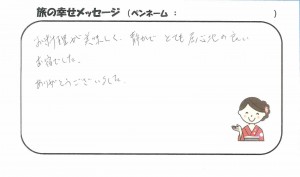 旅の幸せメッセージ（ペンネーム： ）
お料理が美味しく、静かで とても居心地の良い
お宿でした。
ありがとうございました。